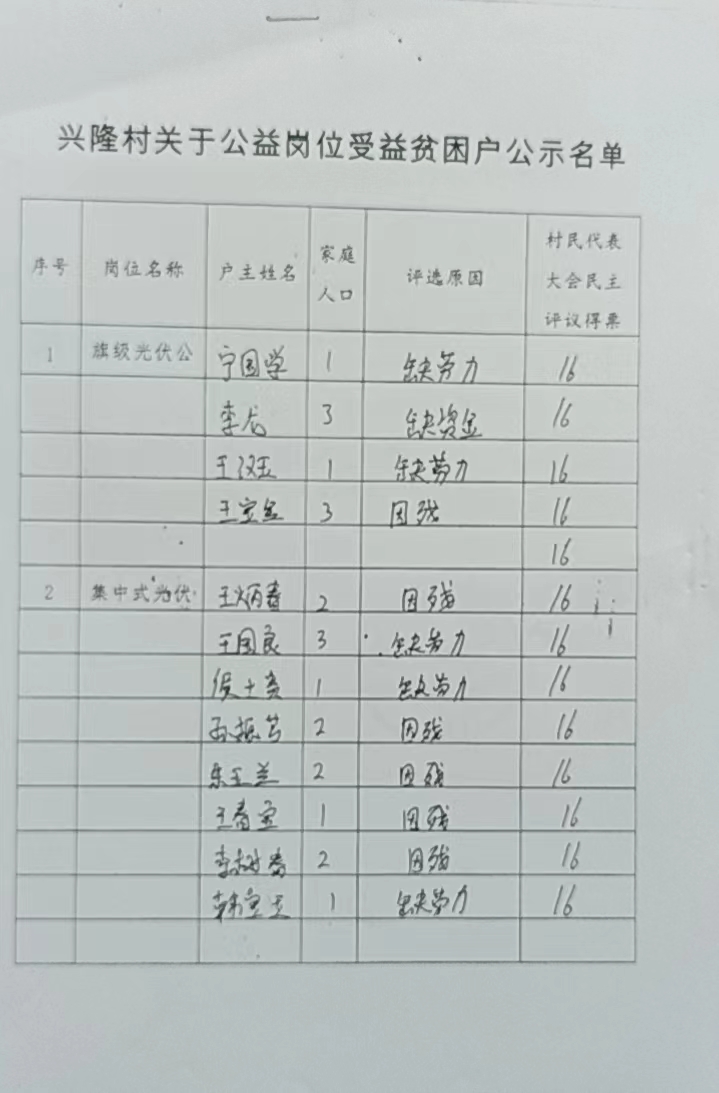 兴隆村关于公益岗位受益贫困户公示名单
序号 岗位名称 户主姓名 家庭人口 评选原因 村民代表大会民主评议得票
1 旗级光伏公 宁国学 1 缺劳力 16
李龙 3 缺资金 16
王汉玉 1 缺劳力 16
王宝金 3 因残 16
16
2 集中式光伏 王炳春 2 因残 16
王国良 3 缺劳力 16
侯士英 1 缺劳力 16
孙振芳 2 因残 16
朱玉兰 2 因残 16
王春宝 1 因残 16
李树春 2 因残 16
韩宝玉 1 缺劳力 16